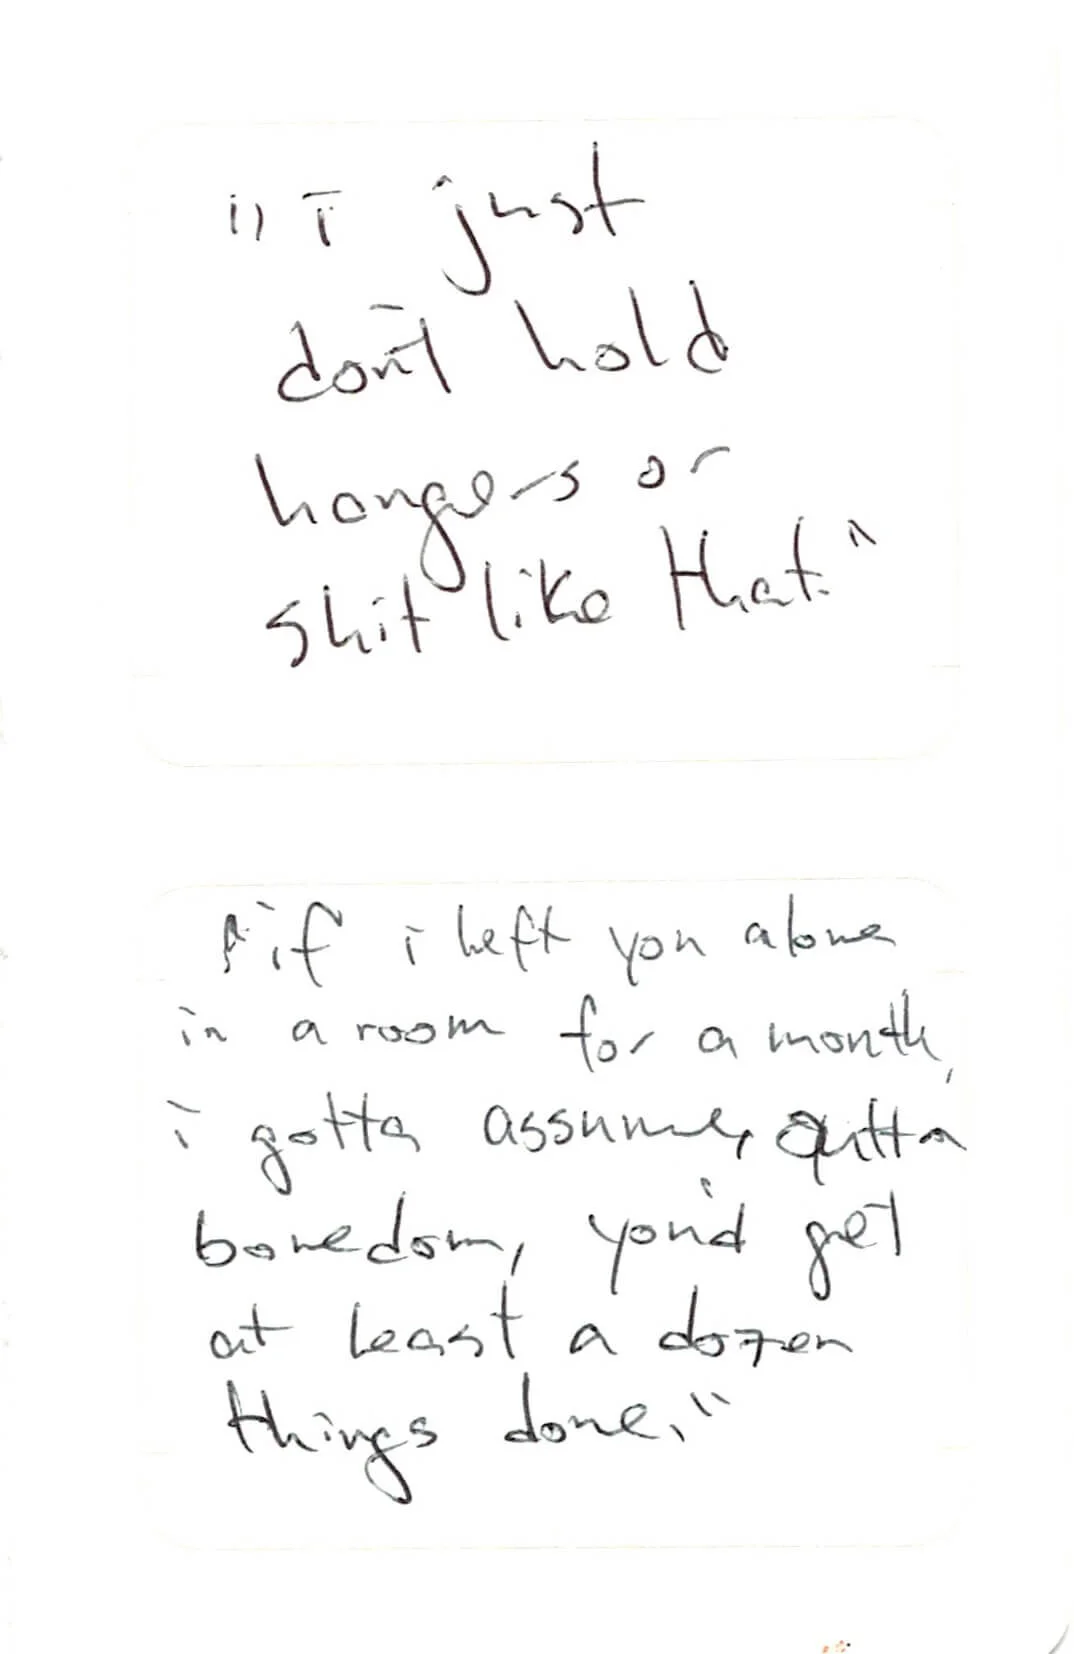 "I just
don't hold
hangers or
shit like that."
"if i left you alone
in a room for a month,
i gotta assume, outta
boredom, you'd get
at least a dozen
things done."